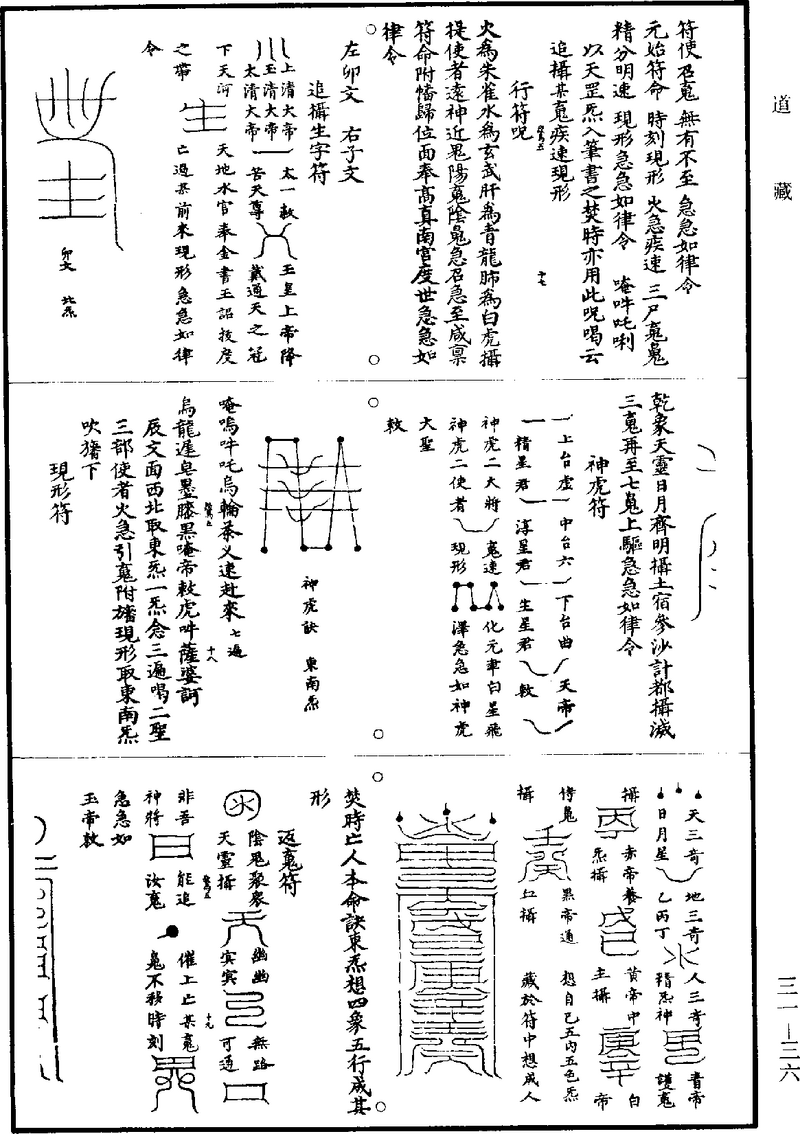 道藏
三一—三六
符使召䰟無有不至急急如律令
元始符命時刻現形火急疾速三尸䰟䰟
精分明速現形急急如律令唵吽吒唎
以天罡炁入筆書之焚時亦用此呪喝云
追攝某䰟疾速現形
行符呪
火為朱雀水為玄武肝為青龍肺為白虎攝
提使者遠神近鬼陽䰟陰鬼急召急至咸稟
符命附幡歸位面奉高真南宮度世急急如
律令
左卯文 右子文
追攝生字符
上清大帝
玉清大帝
太清大帝
太一敕
苦天尊
玉皇上帝降
戴通天之冠
下天河
天地水官奉金書玉詔拔度
之帶
亡過某前來現形急急如律
令
卯文 北炁
乾象天靈日月齊明攝土宿參沙計都攝滅
三䰟再至七䰟上驅急急如律令
神虎符
上台虛 中台六 下台曲 天帝
精星君 淳星君 生星君 敕
神虎二大將 䰟速 化元聿白星飛
神虎二使者 現形 澤急急如神虎
大聖
敕
神虎訣 東南炁
唵嗚吽吒烏輪茶义速赴來七遍
烏龍遲皂墨膝黑唵帝敕虎吽薩婆訶
辰文面西北取東炁一炁念三遍喝二聖
三部使者火急引䰟附旛現形取東南炁
吹旛下
現形符
天三奇 地三奇 人三奇 青帝
日月星 乙丙丁 精炁神 護䰟
攝 丙丁 赤帝養 戊己 黃帝中 庚辛 白
炁攝 主攝 帝
侍䰟 壬癸 黑帝通 想自己五內五色炁
攝 攝 藏於符中想成人
焚時亡人本命訣東炁想四象五行成其
形
返䰟符
火
陰鬼聚衆 幽幽 無路
天靈攝 天 冥冥 己 可通 口
非吾 日 能追 催上亡某䰟
神將 汝䰟 䰟不移時刻
急急如
玉帝敕